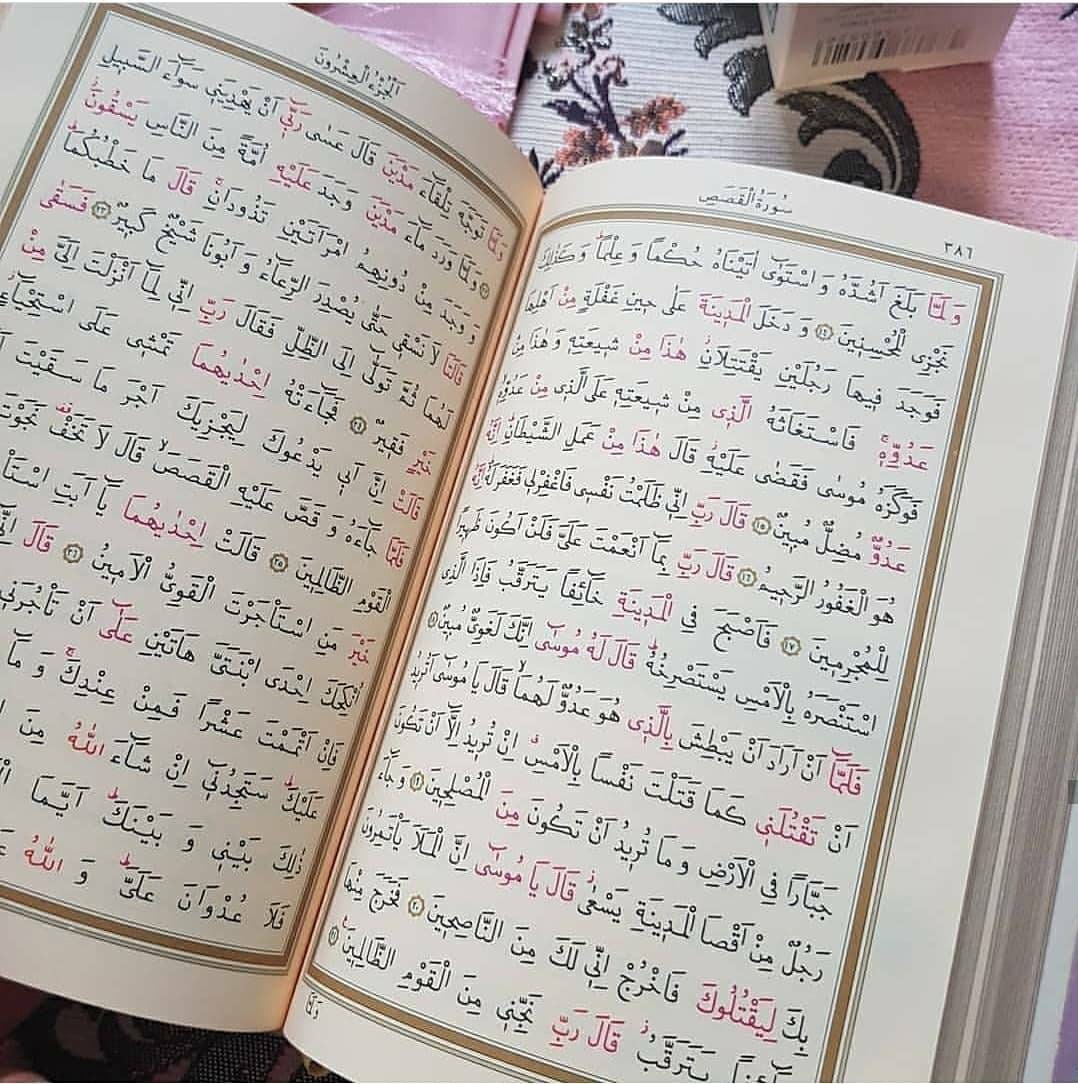 سُورَةُ الْقَصَصِ
٣٨٦
وَلَمَّا بَلَغَ اَشُدَّهُ وَاسْتَوٰٓى اٰتَيْنَاهُ حُكْمًا وَعِلْمًاۜ وَكَذٰلِكَ
نَجْزِي الْمُحْسِن۪ينَ ﴿١٤﴾ وَدَخَلَ الْمَد۪ينَةَ عَلٰى ح۪ينِ غَفْلَةٍ مِنْ اَهْلِهَا
فَوَجَدَ ف۪يهَا رَجُلَيْنِ يَقْتَتِلَانِۘ هٰذَا مِنْ ش۪يعَتِه۪ وَهٰذَا مِنْ
عَدُوِّه۪ۚ فَاسْتَغَاثَهُ الَّذ۪ي مِنْ ش۪يعَتِه۪ عَلَى الَّذ۪ي مِنْ عَدُوِّه۪ۙ
فَوَكَزَهُ مُوسٰى فَقَضٰى عَلَيْهِۘ قَالَ هٰذَا مِنْ عَمَلِ الشَّيْطَانِۜ اِنَّهُ
عَدُوٌّ مُضِلٌّ مُب۪ينٌ ﴿١٥﴾ قَالَ رَبِّ اِنّ۪ي ظَلَمْتُ نَفْس۪ي فَاغْفِرْ ل۪ي فَغَفَرَ لَهُۜ اِنَّهُ
هُوَ الْغَفُورُ الرَّح۪يمُ ﴿١٦﴾ قَالَ رَبِّ بِمَٓا اَنْعَمْتَ عَلَيَّ فَلَنْ اَكُونَ ظَه۪يرًا
لِلْمُجْرِم۪ينَ ﴿١٧﴾ فَاَصْبَحَ فِي الْمَد۪ينَةِ خَٓائِفًا يَتَرَقَّبُ فَاِذَا الَّذِي
اسْتَنْصَرَهُ بِالْاَمْسِ يَسْتَصْرِخُهُۜ قَالَ لَهُ مُوسٰٓى اِنَّكَ لَغَوِيٌّ مُب۪ينٌ ﴿١٨﴾
فَلَمَّٓا اَنْ اَرَادَ اَنْ يَبْطِشَ بِالَّذ۪ي هُوَ عَدُوٌّ لَهُمَاۙ قَالَ يَا مُوسٰٓى اَتُر۪يدُ
اَنْ تَقْتُلَن۪ي كَمَا قَتَلْتَ نَفْسًا بِالْاَمْسِۗ اِنْ تُر۪يدُ اِلَّٓا اَنْ تَكُونَ
جَبَّارًا فِي الْاَرْضِ وَمَا تُر۪يدُ اَنْ تَكُونَ مِنَ الْمُصْلِح۪ينَ ﴿١٩﴾ وَجَٓاءَ
رَجُلٌ مِنْ اَقْصَا الْمَد۪ينَةِ يَسْعٰىۘ قَالَ يَا مُوسٰٓى اِنَّ الْمَلَاَ يَأْتَمِرُونَ
بِكَ لِيَقْتُلُوكَ فَاخْرُجْ اِنّ۪ي لَكَ مِنَ النَّاصِح۪ينَ ﴿٢٠﴾ فَخَرَجَ مِنْهَا
يَتَرَقَّبُۘ قَالَ رَبِّ نَجِّن۪ي مِنَ الْقَوْمِ الظَّالِم۪ينَ۟ ﴿٢١﴾
وَلَمَّا
اَلْجُزْءُ الْعِشْرُونَ
وَلَمَّا تَوَجَّهَ تِلْقَٓاءَ مَدْيَنَ قَالَ عَسٰى رَبّ۪ٓي اَنْ يَهْدِيَن۪ي سَوَٓاءَ السَّب۪يلِ
﴿٢٢﴾ وَلَمَّا وَرَدَ مَٓاءَ مَدْيَنَ وَجَدَ عَلَيْهِ اُمَّةً مِنَ النَّاسِ يَسْقُونَۘ
وَوَجَدَ مِنْ دُونِهِمُ امْرَاَتَيْنِ تَذُودَانِۚ قَالَ مَا خَطْبُكُمَاۜ
قَالَتَا لَا نَسْق۪ي حَتّٰى يُصْدِرَ الرِّعَٓاءُ وَاَبُونَا شَيْخٌ كَب۪يرٌ ﴿٢٣﴾ فَسَقٰى
لَهُمَا ثُمَّ تَوَلّٰٓى اِلَى الظِّلِّ فَقَالَ رَبِّ اِنّ۪ي لِمَٓا اَنْزَلْتَ اِلَيَّ مِنْ
خَيْرٍ فَق۪يرٌ ﴿٢٤﴾ فَجَٓاءَتْهُ اِحْدٰيهُمَا تَمْش۪ي عَلَى اسْتِحْيَٓاءٍۘ
قَالَتْ اِنَّ اَب۪ي يَدْعُوكَ لِيَجْزِيَكَ اَجْرَ مَا سَقَيْتَ
فَلَمَّا جَٓاءَهُ وَقَصَّ عَلَيْهِ الْقَصَصَۙ قَالَ لَا تَخَفْ۠ نَجَوْتَ
الْقَوْمِ الظَّالِم۪ينَ ﴿٢٥﴾ قَالَتْ اِحْدٰيهُمَا يَٓا اَبَتِ
خَيْرَ مَنِ اسْتَأْجَرْتَ الْقَوِيُّ الْاَم۪ينُ ﴿٢٦﴾ قَالَ
اُنْكِحَكَ اِحْدَى ابْنَتَيَّ هَاتَيْنِ عَلٰٓى اَنْ تَأْجُرَن۪ي
فَاِنْ اَتْمَمْتَ عَشْرًا فَمِنْ عِنْدِكَۚ وَمَٓا
عَلَيْكَۜ سَتَجِدُن۪ٓي اِنْ شَٓاءَ اللّٰهُ مِنَ
ذٰلِكَ بَيْن۪ي وَبَيْنَكَۜ اَيَّمَا
فَلَا عُدْوَانَ عَلَيَّۜ وَاللّٰهُ